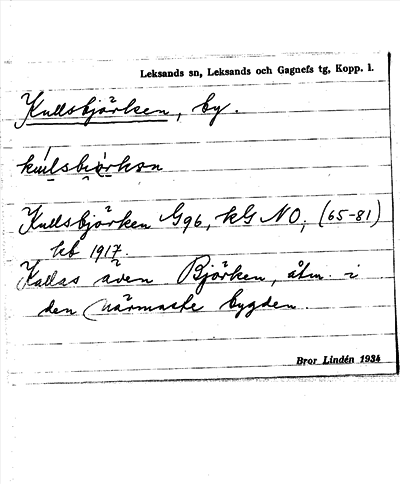 Leksands sn, Leksands och Gagnefs tg, Kopp. l.
Kullsbjörken, by.
Kullsbjörken G96, kG NO; (65-81)
ub 1917.
Kallas även Björken, åtm. i
den närmaste bygden.
Bror Lindén 1934